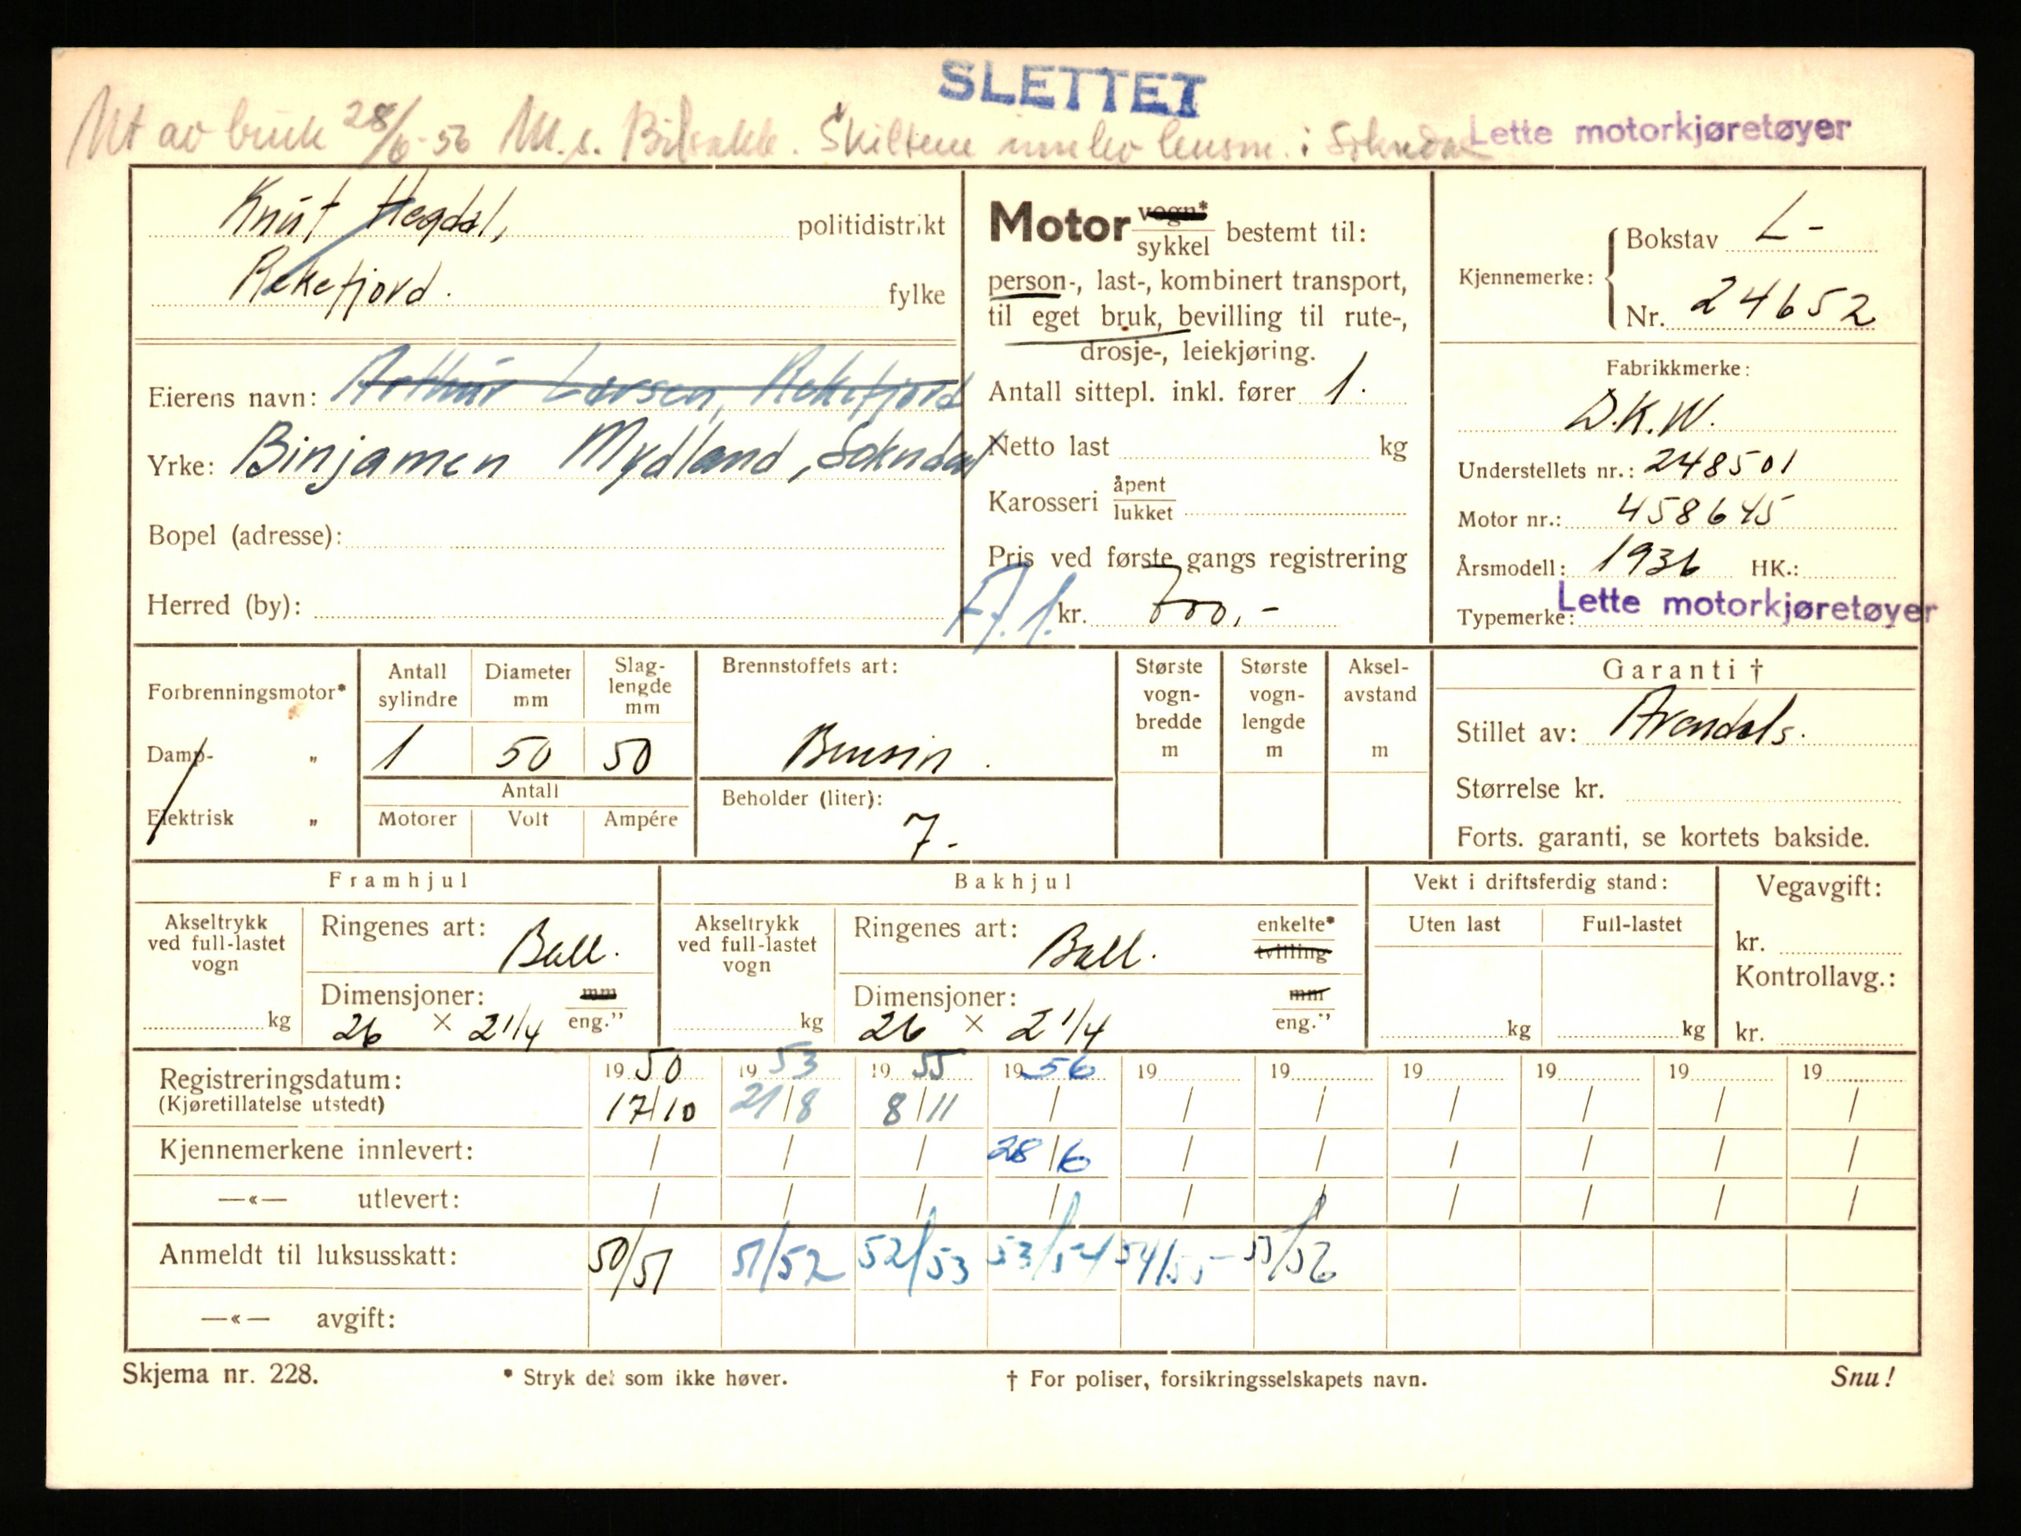 SLETTET
Ut av bruk 28/6-56 M.s. Bilsakk. Skiltene innlev lensm. i Sokndal
Lette motorkjøretøyer
Knut Hegdal, politidistrikt
Rekefjord. fylke
Eierens navn: Arthur Larsen, Rekefjord
Yrke: Binjamen Mydland, Sokndal
Bopel (adresse):
Herred (by):
Motor vogn* sykkel bestemt til:
person-, last-, kombinert transport,
til eget bruk, bevilling til rute-,
drosje-, leiekjøring.
Antall sittepl. inkl. fører 1.
Netto last kg
Karosseri åpent lukket
Pris ved første gangs registrering
kr. 700,-
Kjennemerke: Bokstav L-
Nr. 24652
Fabrikkmerke:
D.K.W.
Understellets nr.: 248501
Motor nr.: 458645
Årsmodell: 1936 HK.:
Typemerke: Lette motorkjøretøyer
Forbrenningsmotor*
Damp- "
Elektrisk "
Antall sylindre
Diameter mm
Slag- lengde mm
1 50 50
Antall
Motorer Volt Ampére
Brennstoffets art:
Bensin.
Beholder (liter):
7-
Største vogn- bredde m
Største vogn- lengde m
Aksel- avstand m
Garanti †
Stillet av: Arendals.
Størrelse kr.
Forts. garanti, se kortets bakside.
Framhjul
Akseltrykk ved full-lastet vogn
kg
Ringenes art: Ball.
Dimensjoner: mm eng."
26 × 2 1/4
Bakhjul
Akseltrykk ved full-lastet vogn
kg
Ringenes art: Ball. enkelte* tvilling
Dimensjoner: mm eng."
26 × 2 1/4
Vekt i driftsferdig stand:
Uten last Full-lastet
kg kg
Vegavgift:
kr.
Kontrollavg.:
kr.
Registreringsdatum: 1950 1953 1955 1956 19 19 19 19 19 19
(Kjøretillatelse utstedt) 17/10 21/8 8/11 / / / / / / /
Kjennemerkene innlevert: / / / 28/6 / / / / / /
—«— utlevert: / / / / / / / / / /
Anmeldt til luksusskatt: 50/51 51/52 52/53 53/54 54/55- 55/56
—«— avgift:
Skjema nr. 228. * Stryk det som ikke høver. † For poliser, forsikringsselskapets navn. Snu!